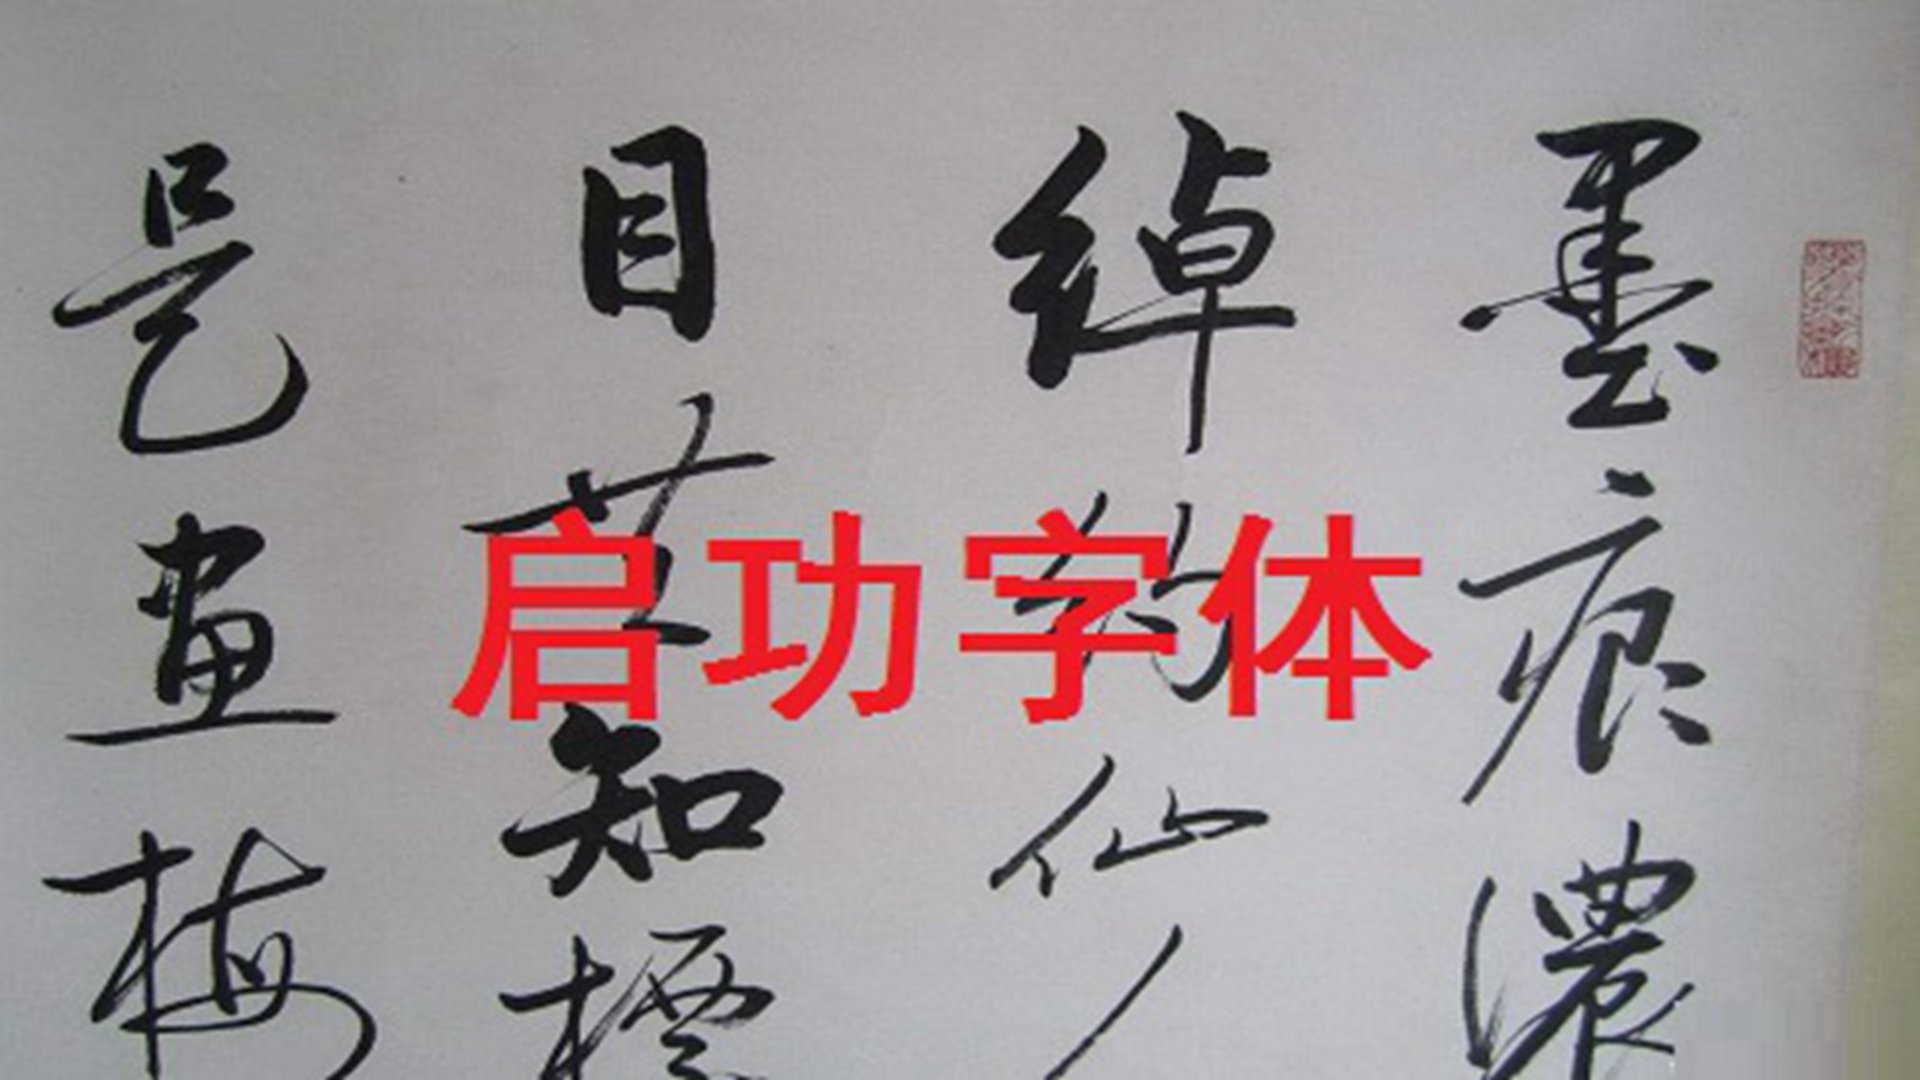 墨痕濃
綽約仙人
目其知標
是畫梅
启功字体